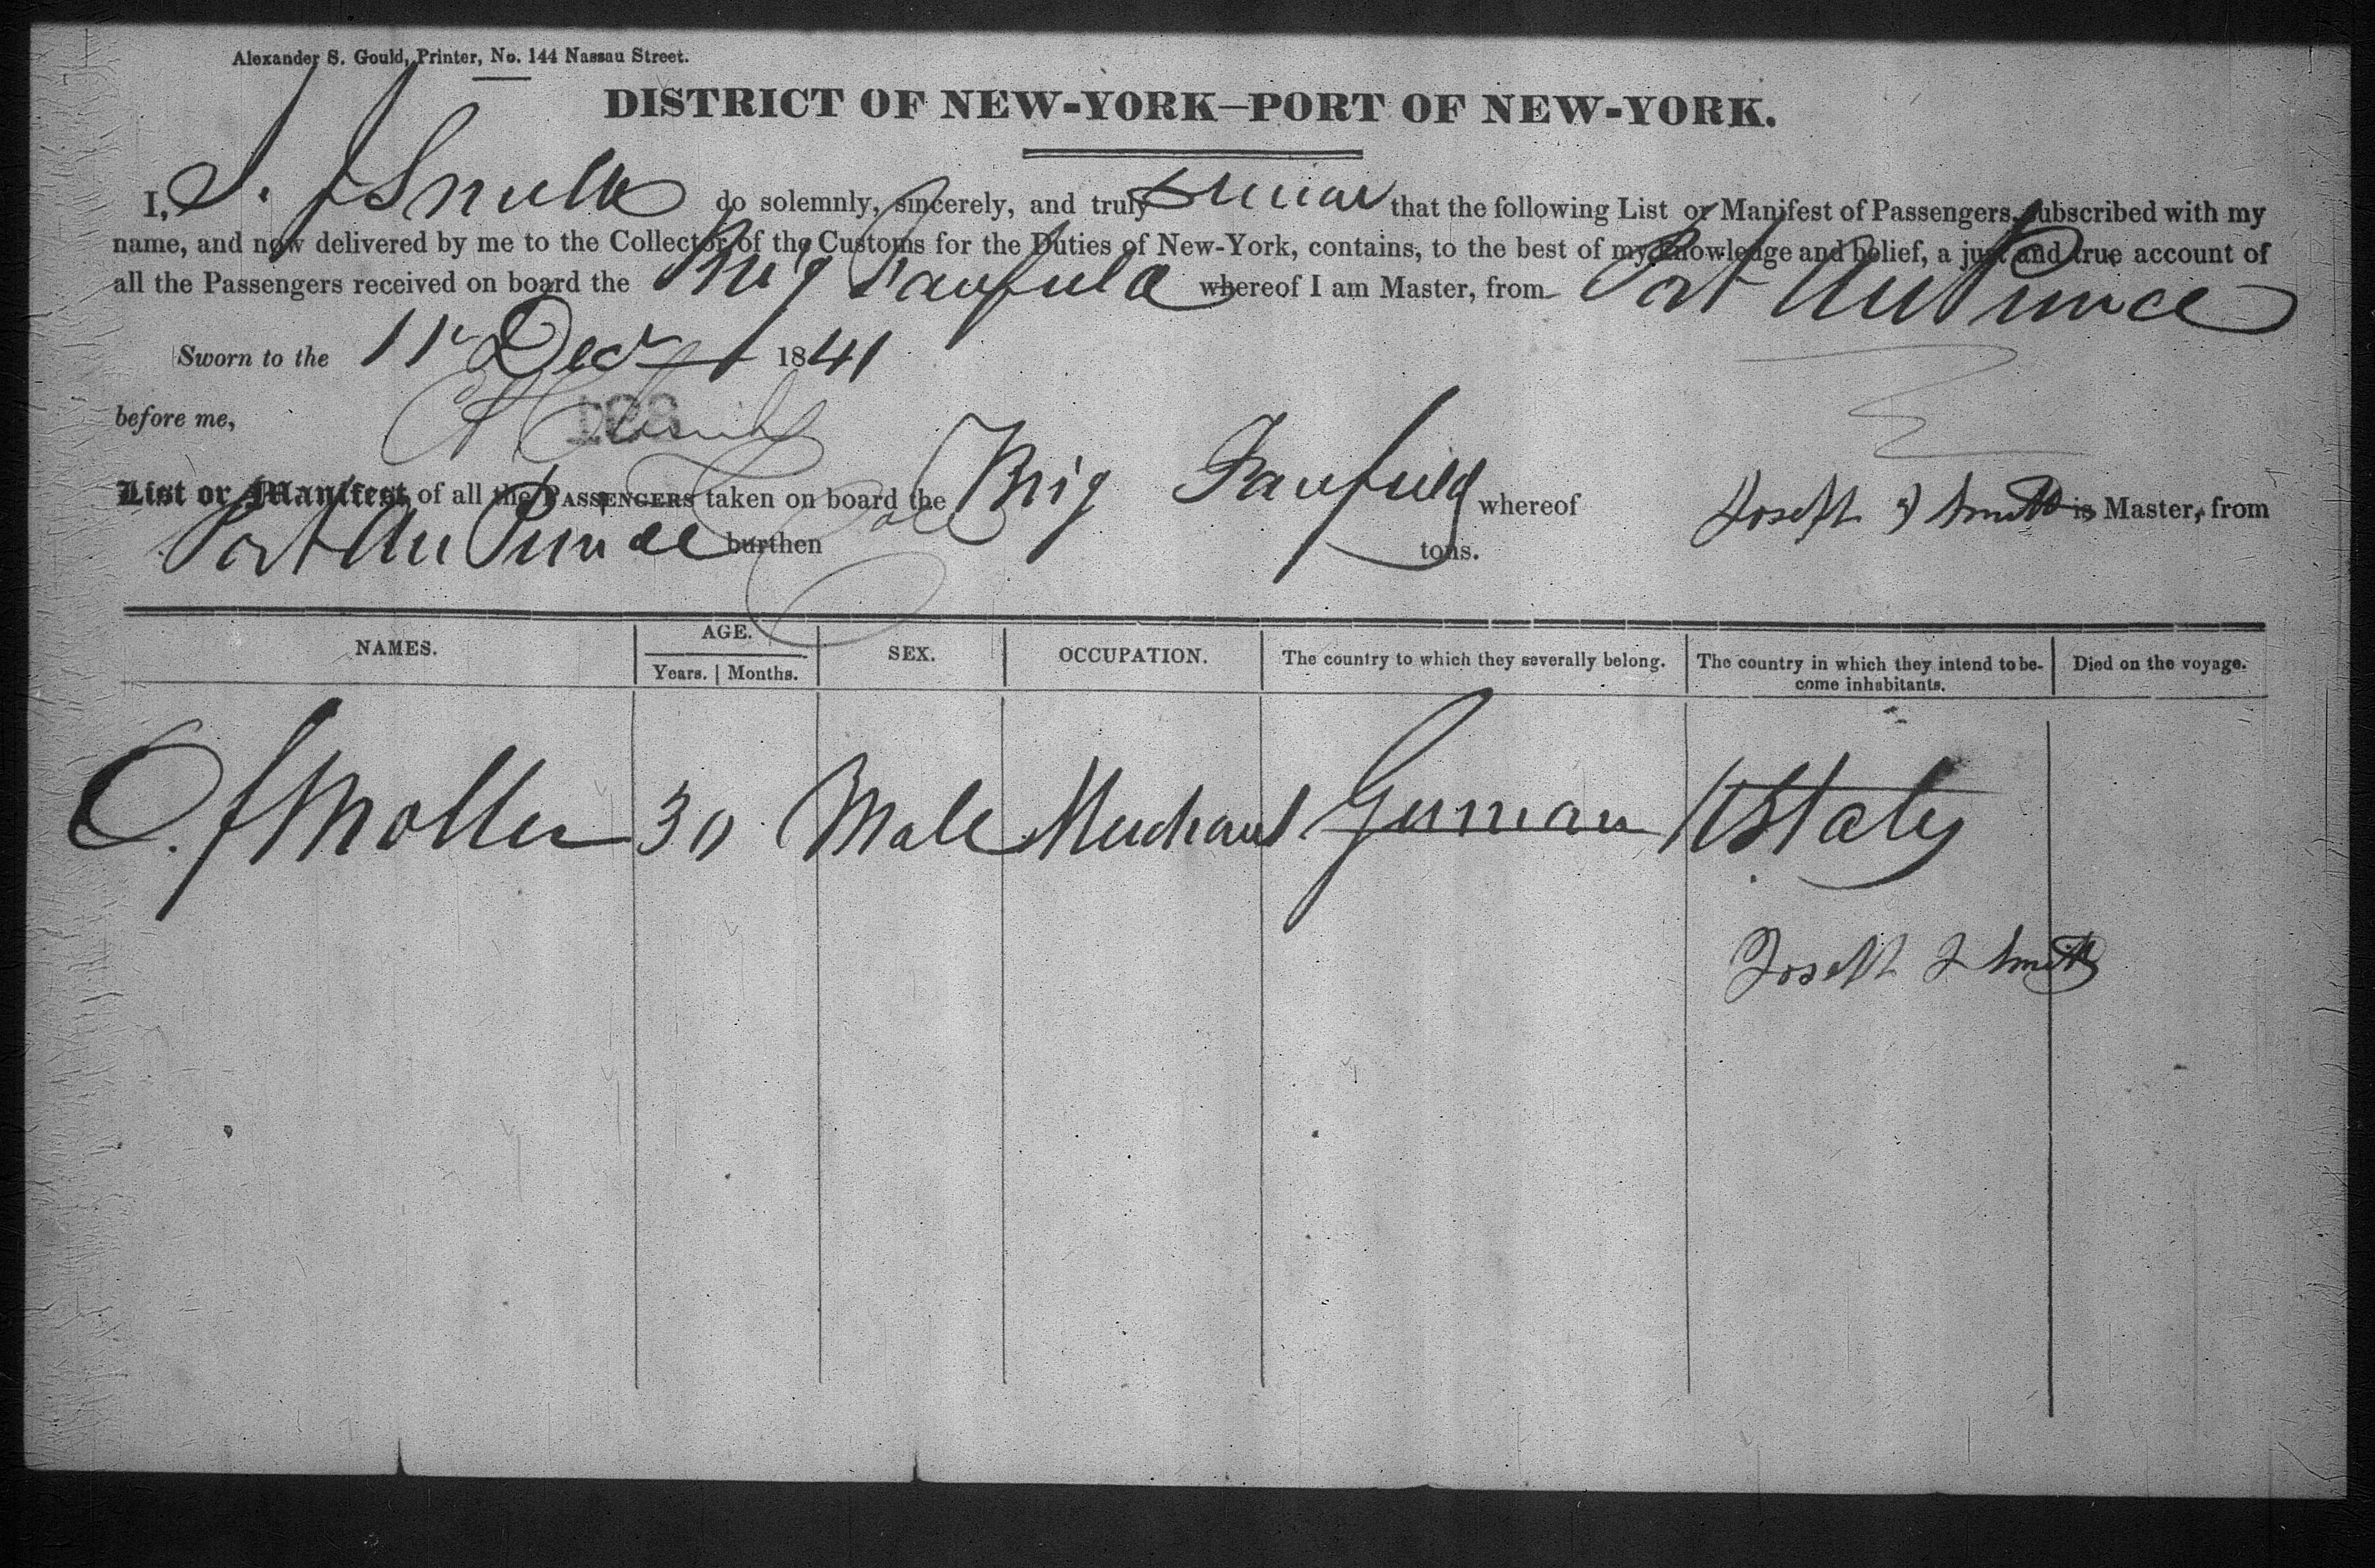 Alexander S. Gould, Printer, No. 144 Nassau Street.
DISTRICT OF NEW-YORK—PORT OF NEW-YORK.
I, J. J Smith do solemnly, sincerely, and truly swear that the following List or Manifest of Passengers, subscribed with my
name, and now delivered by me to the Collector of the Customs for the Duties of New-York, contains, to the best of my knowledge and belief, a just and true account of
all the Passengers received on board the Brig Fairfield whereof I am Master, from Port Au Prince
Sworn to the 11 Decr 1841
before me,
List or Manifest of all the PASSENGERS taken on board the Brig Fairfield whereof Joseph J Smith is Master, from
Port Au Prince burthen tons.
NAMES. AGE. SEX. OCCUPATION. The country to which they severally belong. The country in which they intend to be- Died on the voyage.
Years. Months. come inhabitants.
C. J Moller 30 Male Merchant German U States
Joseph J Smith